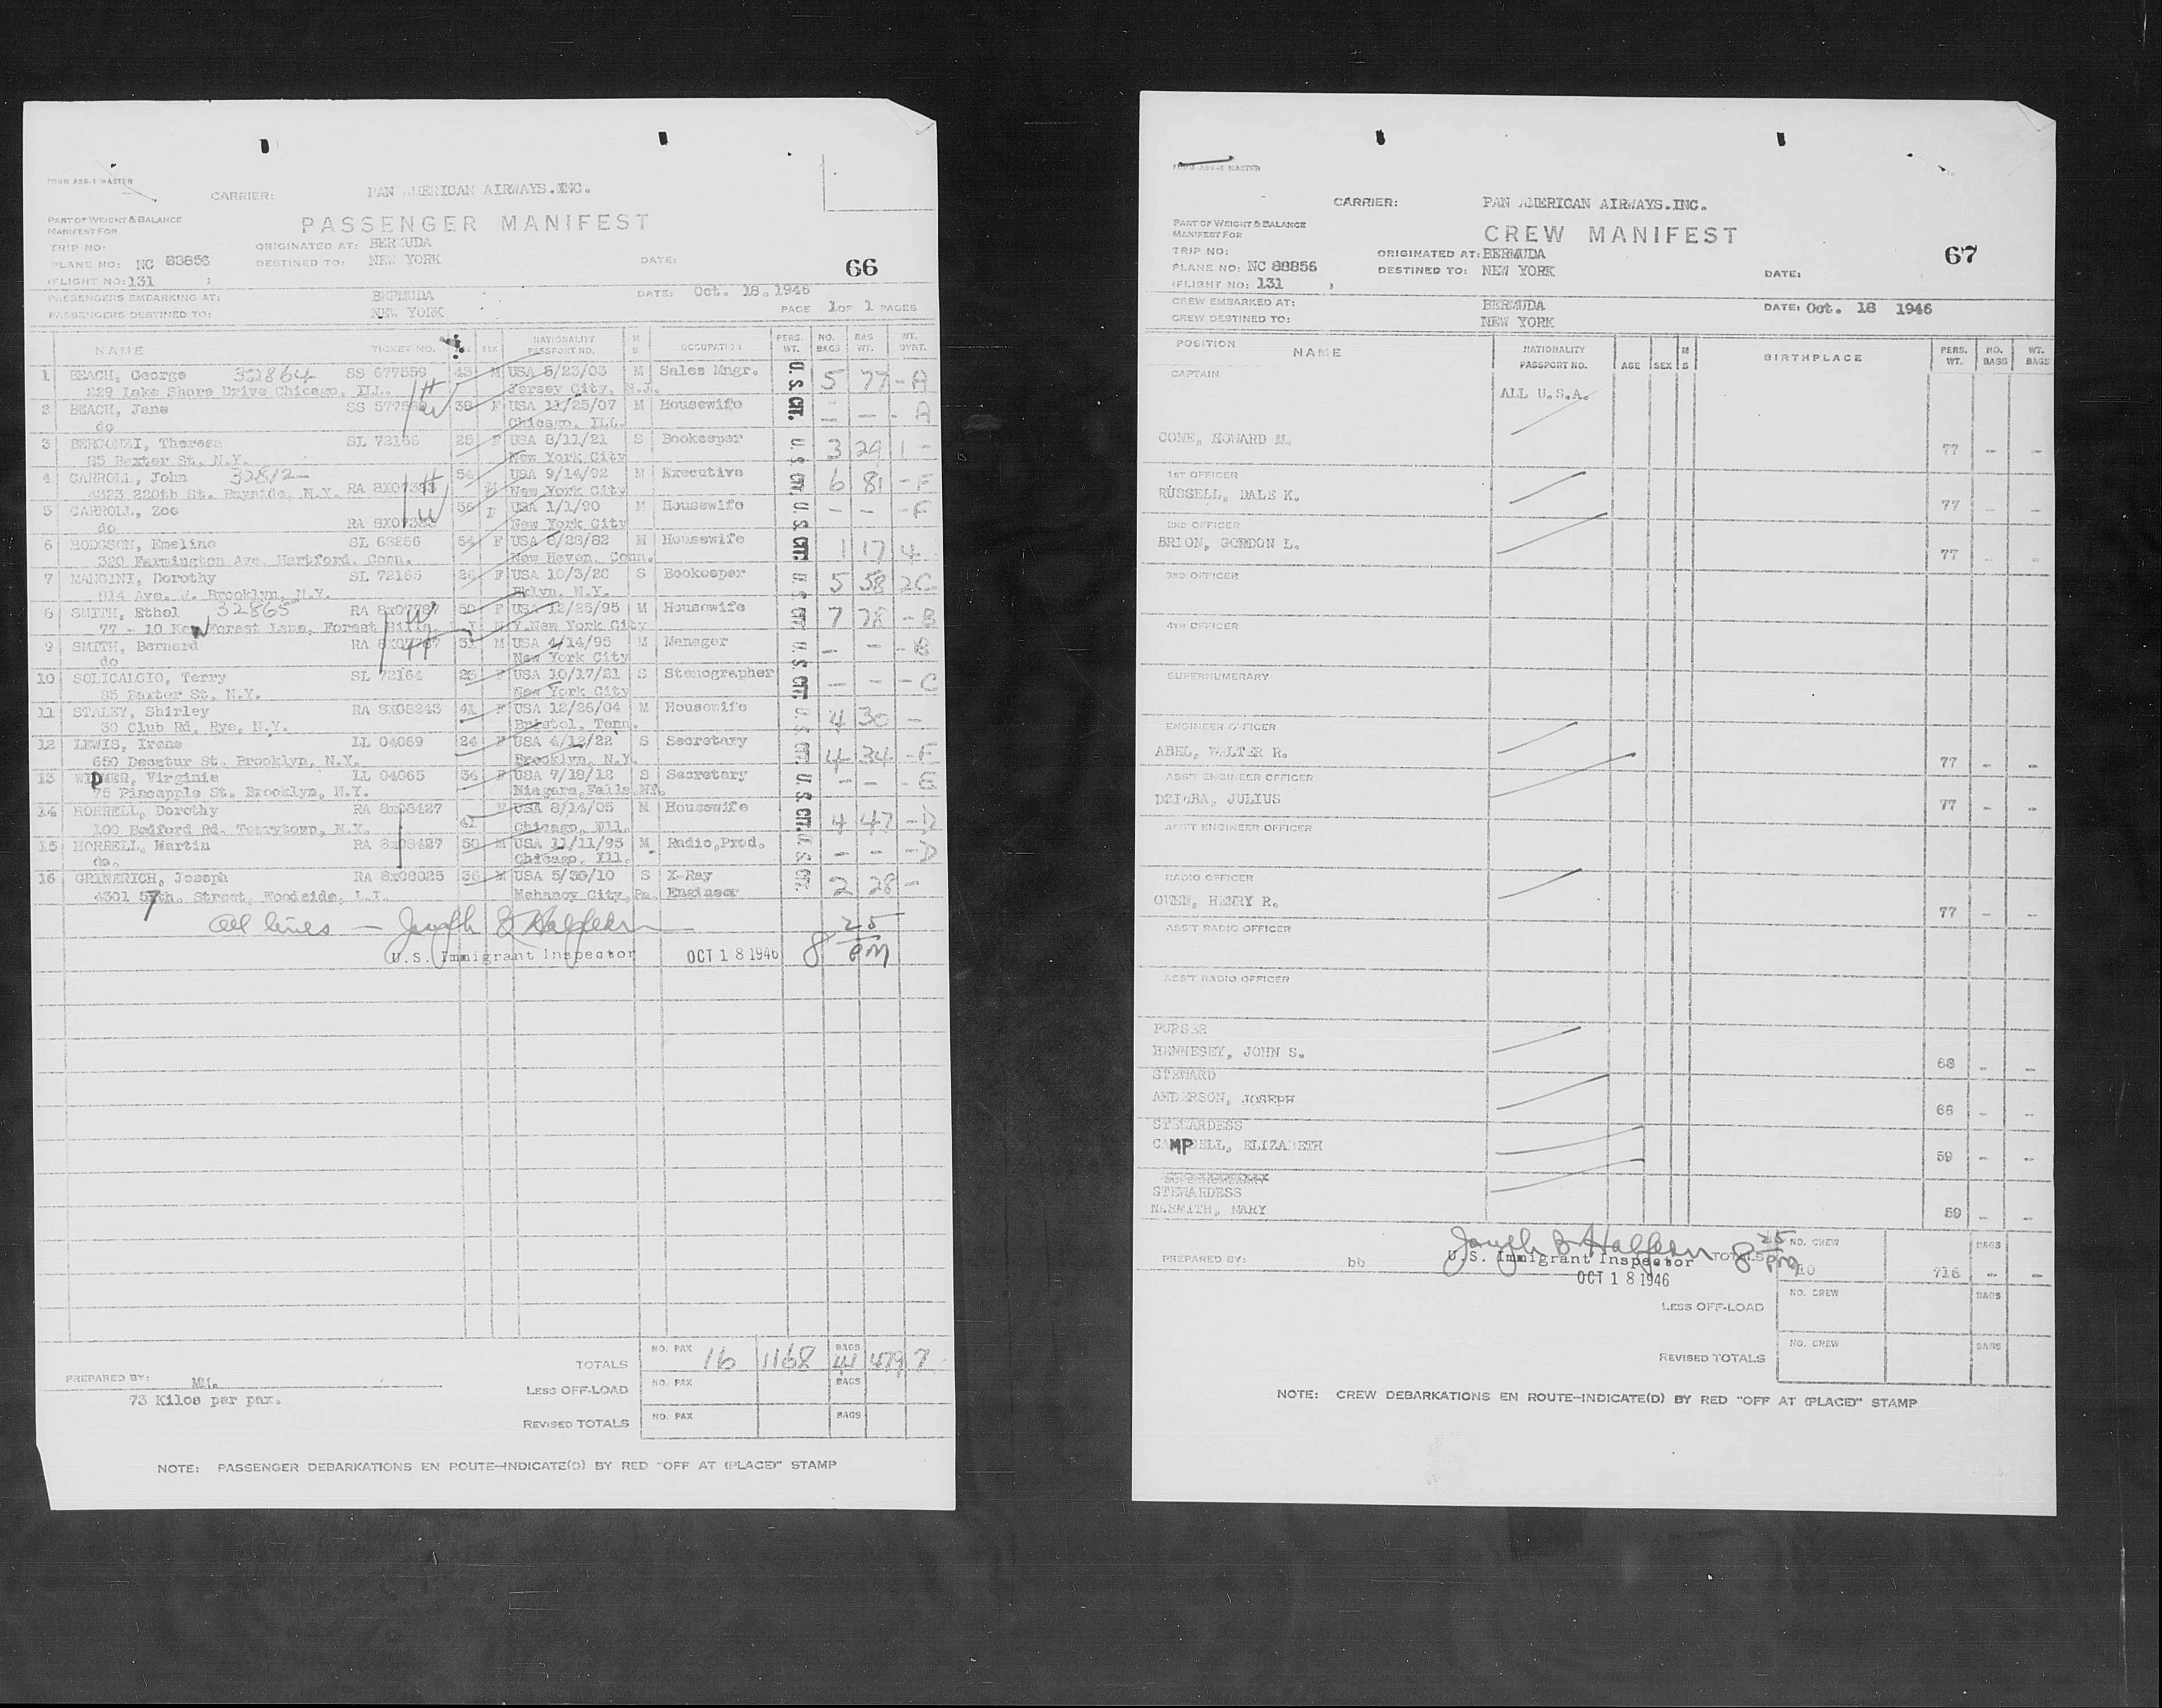 FORM AS6-1 MASTER
CARRIER: PAN AMERICAN AIRWAYS.INC.
PART OF WEIGHT & BALANCE
MANIFEST FOR
PASSENGER MANIFEST
TRIP NO:
ORIGINATED AT: BERMUDA
PLANE NO: NC 88856
DESTINED TO: NEW YORK
DATE:
66
(FLIGHT NO: 131 )
PASSENGERS EMBARKING AT: BERMUDA
DATE: Oct. 18, 1946
PASSENGERS DESTINED TO: NEW YORK
PAGE 1 OF 1 PAGES
NAME TICKET NO. SEX NATIONALITY PASSPORT NO. M S OCCUPATION PERS. WT. NO. BAGS BAG WT. WT. OVNT.
1 BEACH, George 32864 SS 577559 43 M USA 5/23/03 M Sales Mngr. 5 77 - A
229 Lake Shore Drive Chicago, ILL. Jersey City, N.J.
2 BEACH, Jane SS 38 F USA 11/25/07 M Housewife - - - A
do Chicago, ILL.
3 BERGONZI, Theresa SL 72166 25 F USA 8/11/21 S Bookeeper 3 29 1 -
85 Baxter St, N.Y. New York City
4 CARROLL, John 32812 54 USA 9/14/92 M Executive 6 81 - F
4323 220th St. Bayside, N.Y. RA M New York City
5 CARROLL, Zoe 56 F USA 1/1/90 M Housewife - - - F
do RA New York City
6 HODGSON, Emeline SL 68266 64 F USA 8/28/82 M Housewife 1 17 4
320 Farmington Ave. Hartford. Conn. New Haven, Conn.
7 MANGINI, Dorothy SL 72165 26 F USA 10/3/20 S Bookeeper 5 58 2C
814 Ave. W. Brooklyn, N.Y. Bklyn, N.Y.
8 SMITH, Ethel 32865 RA 8X07787 50 F USA 12/25/95 M Housewife 7 78 - B
77 - 10 Kew Forest Lane, Forest Hills, L.I. N.Y. New York City
9 SMITH, Bernard RA 8X07787 51 M USA 4/14/95 M Manager - - - B
do New York City
10 SOLICALCIO, Terry SL 72164 25 F USA 10/17/21 S Stenographer - - - C
85 Baxter St, N.Y. New York City
11 STALEY, Shirley RA 8X08243 41 F USA 12/26/04 M Housewife 4 30 -
30 Club Rd, Rye, N.Y. Bristol, Tenn.
12 LEWIS, Irene LL 04069 24 F USA 4/12/22 S Secretary 4 34 - E
650 Decatur St. Brooklyn, N.Y. Brooklyn, N.Y.
13 Virginia LL 04065 34 F USA 7/18/12 S Secretary - - - E
75 Pineapple St. Brooklyn, N.Y. Niagara, Falls, NY.
14 HORRELL, Dorothy RA 8X08427 F USA 8/14/05 M Housewife 4 47 - D
100 Bedford Rd. Terrytown, N.Y. 41 Chicago, Ill.
15 HORRELL, Martin RA 8X08427 50 M USA 11/11/95 M Radio,Prod. - - - D
do. Chicago, Ill.
16 GRINERICH, Joseph RA 8X08025 36 M USA 5/30/10 S X-Ray 2 28 -
4301 57th. Street, Woodside, L.I. Mahanoy City, Pa. Engineer
U.S. CIT. U.S. CIT. U.S. CIT. U.S. CIT. U.S. CIT. U.S. CIT.
All lines — Joseph B Halpern
U.S. Immigrant Inspector OCT 18 1946 8 25 PM
TOTALS NO. PAX 16 1168 BAGS 41 479 7
PREPARED BY: MM.
LESS OFF-LOAD NO. PAX BAGS
73 Kilos per pax.
REVISED TOTALS NO. PAX BAGS
NOTE: PASSENGER DEBARKATIONS EN ROUTE—INDICATE(D) BY RED "OFF AT (PLACE)" STAMP
FORM AS6-1 MASTER
CARRIER: PAN AMERICAN AIRWAYS.INC.
PART OF WEIGHT & BALANCE
MANIFEST FOR
CREW MANIFEST
67
TRIP NO:
ORIGINATED AT: BERMUDA
PLANE NO: NC 88856
DESTINED TO: NEW YORK
DATE:
(FLIGHT NO: 131 )
CREW EMBARKED AT: BERMUDA
DATE: Oct. 18 1946
CREW DESTINED TO: NEW YORK
POSITION NAME NATIONALITY PASSPORT NO. AGE SEX M S BIRTHPLACE PERS. WT. NO. BAGS WT. BAGS
CAPTAIN
ALL U.S.A.
CONE, HOWARD M. 77 - -
1ST OFFICER
RUSSELL, DALE K. 77 - -
2ND OFFICER
BRION, GORDON L. 77 - -
3RD OFFICER
4TH OFFICER
SUPERNUMERARY
ENGINEER OFFICER
ABEL, WALTER R. 77 - -
ASS'T ENGINEER OFFICER
DZIUBA, JULIUS 77 - -
ASS'T ENGINEER OFFICER
RADIO OFFICER
OWEN, HENRY R. 77 - -
ASS'T RADIO OFFICER
ASS'T RADIO OFFICER
PURSER
HENNESEY, JOHN S. 68 - -
STEWARD
ANDERSON, JOSEPH 68 - -
STEWARDESS
CAMPBELL, ELIZABETH 59 - -
STEWARDESS
NASMITH, MARY 59 - -
Joseph B Halpern 8 25 PM
PREPARED BY: bb
U.S. Immigrant Inspector
OCT 18 1946
TOTALS NO. CREW 10 716 BAGS - -
LESS OFF-LOAD NO. CREW BAGS
REVISED TOTALS NO. CREW BAGS
NOTE: CREW DEBARKATIONS EN ROUTE—INDICATE(D) BY RED "OFF AT (PLACE)" STAMP